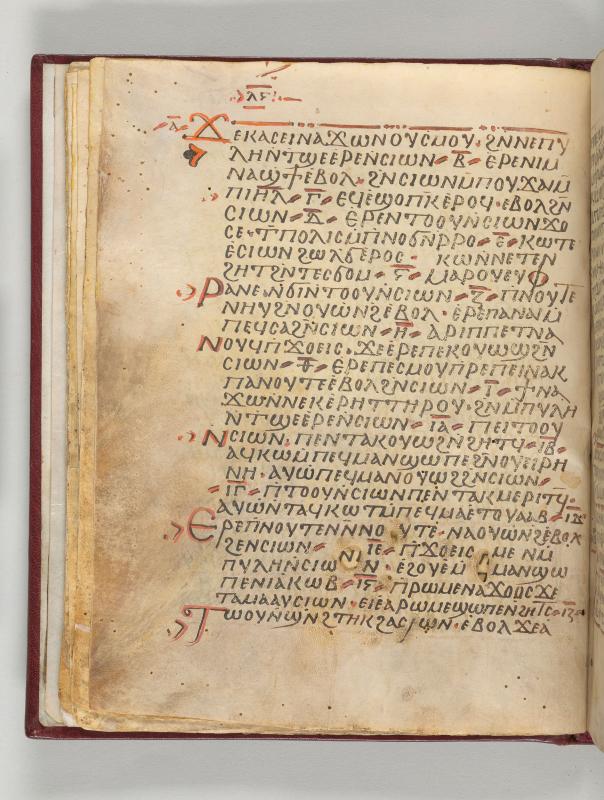 ⲗⲋ
ⲁ ϫⲉⲕⲁⲥⲉⲓⲛⲁϫⲱⲛⲟⲩⲥⲙⲟⲩ· ϩⲛⲛⲉⲡⲩ
ⲗⲏⲛⲧϣⲉⲉⲣⲉⲛⲥⲓⲱⲛ ⲃ ⲉⲣⲉⲛⲓⲙ
ⲛⲁⲱϯⲉⲃⲟⲗ· ϩⲛⲥⲓⲱⲛⲙⲡⲟⲩϫⲁⲓⲙ
ⲡⲓⲏⲗ ⲅ ⲉϥⲉϣⲟⲡⲕⲉⲣⲟϥ· ⲉⲃⲟⲗϩⲛ
ⲥⲓⲱⲛ ⲇ ⲉⲣⲉⲛⲧⲟⲟⲩⲛⲥⲓⲱⲛϫⲟ
ⲥⲉ ⲧⲡⲟⲗⲓⲥⲙⲡⲛⲟϭⲛⲣⲣⲟ ⲉ ⲕⲱⲧⲉ
ⲉⲥⲓⲱⲛϩⲱⲗϭⲉⲣⲟⲥ· ⲕⲱⲛⲛⲉⲧⲉⲛ
ϩⲏⲧϩⲛⲧⲉⲥϭⲟⲙ ⲋ ⲙⲁⲣⲟⲩⲉⲩⲫ
ⲣⲁⲛⲉⲛϭⲓⲛⲧⲟⲟⲩⲛⲥⲓⲱⲛ ⲍ ⲡⲛⲟⲩⲧⲉ
ⲛⲏⲩϩⲛⲟⲩⲱⲛϩⲉⲃⲟⲗ· ⲉⲣⲉⲡⲁⲛⲁⲙ
ⲡⲉϥⲥⲁϩⲛⲥⲓⲱⲛ ⲏ ⲁⲣⲓⲡⲡⲉⲧⲛⲁ
ⲛⲟⲩϥⲡϫⲟⲉⲓⲥ· ϫⲉⲉⲣⲉⲡⲉⲕⲟⲩⲱϣϩⲛ
ⲥⲓⲱⲛ ⲑ ⲉⲣⲉⲡⲉⲥⲙⲟⲩⲡⲣⲉⲡⲉⲓⲛⲁⲕ
ⲡⲁⲛⲟⲩⲧⲉⲉⲃⲟⲗϩⲛⲥⲓⲱⲛ ⲓ ϯⲛⲁ
ϫⲱⲛⲛⲉⲕⲉⲣⲏⲧⲧⲏⲣⲟⲩ· ϩⲛⲙⲡⲩⲗⲏ
ⲛⲧϣⲉⲉⲣⲉⲛⲥⲓⲱⲛ ⲓⲁ ⲡⲉⲓⲧⲟⲟⲩ
ⲛⲥⲓⲱⲛ· ⲡⲉⲛⲧⲁⲕⲟⲩⲱϩⲛϩⲏⲧϥ ⲓⲃ
ⲁϥⲕⲱⲙⲡⲉϥⲙⲁⲛϣⲱⲡⲉϩⲛⲟⲩⲉⲓⲣⲏ
ⲛⲏ· ⲁⲩⲱⲡⲉϥⲙⲁⲛⲟⲩⲱϩϩⲛⲥⲓⲱⲛ
ⲓⲅ ⲡⲧⲟⲟⲩⲛⲥⲓⲱⲛⲡⲉⲛⲧⲁⲕⲙⲉⲣⲓⲧϥ·
ⲁⲩⲱⲛⲧⲁϥⲕⲱⲧⲙⲡⲉϥⲙⲁⲉⲧⲟⲩⲁⲁⲃ ⲓⲇ
ⲉⲣⲉⲡⲛⲟⲩⲧⲉⲛⲛⲛⲟⲩⲧⲉ· ⲛⲁⲟⲩⲱⲛϩⲉⲃⲟⲗ
ϩⲉⲛⲥⲓⲱⲛ ⲓⲉ ⲡϫⲟⲉⲓⲥ ⲙⲉ ⲛⲙ
ⲡⲩⲗⲏⲛⲥⲓⲱⲛ· ⲉϩⲟⲩⲉⲙⲙⲁⲛϣⲱ
ⲡⲉⲛⲓⲁⲕⲱⲃ ⲓⲋ ⲡⲣⲱⲙⲉⲛⲁϫⲟⲟⲥϫⲉ
ⲧⲁⲙⲁⲁⲩⲥⲓⲱⲛ· ⲉⲓⲉⲁⲣⲱⲙⲉϣⲱⲡⲉⲛϩⲏⲧⲥ ⲓⲍ
ⲧⲱⲟⲩⲛⲱⲛϩⲧⲏⲕϩⲁⲥⲓⲱⲛ· ⲉⲃⲟⲗϫⲉⲁ